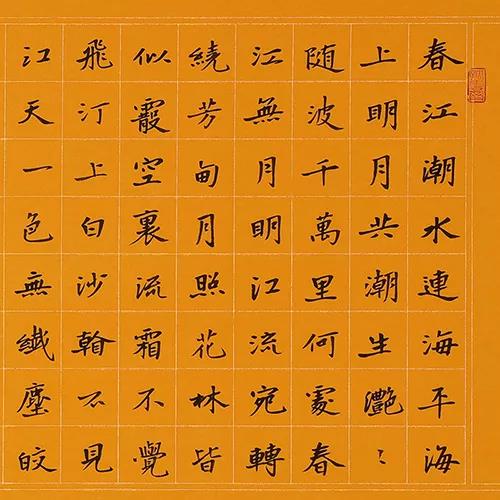 春江潮水連海平海
上明月共潮生灩〻
随波千萬里何處春
江無月明江流宛轉
繞芳甸月照花林皆
似霰空裏流霜不覺
飛汀上白沙看不見
江天一色無纖塵皎